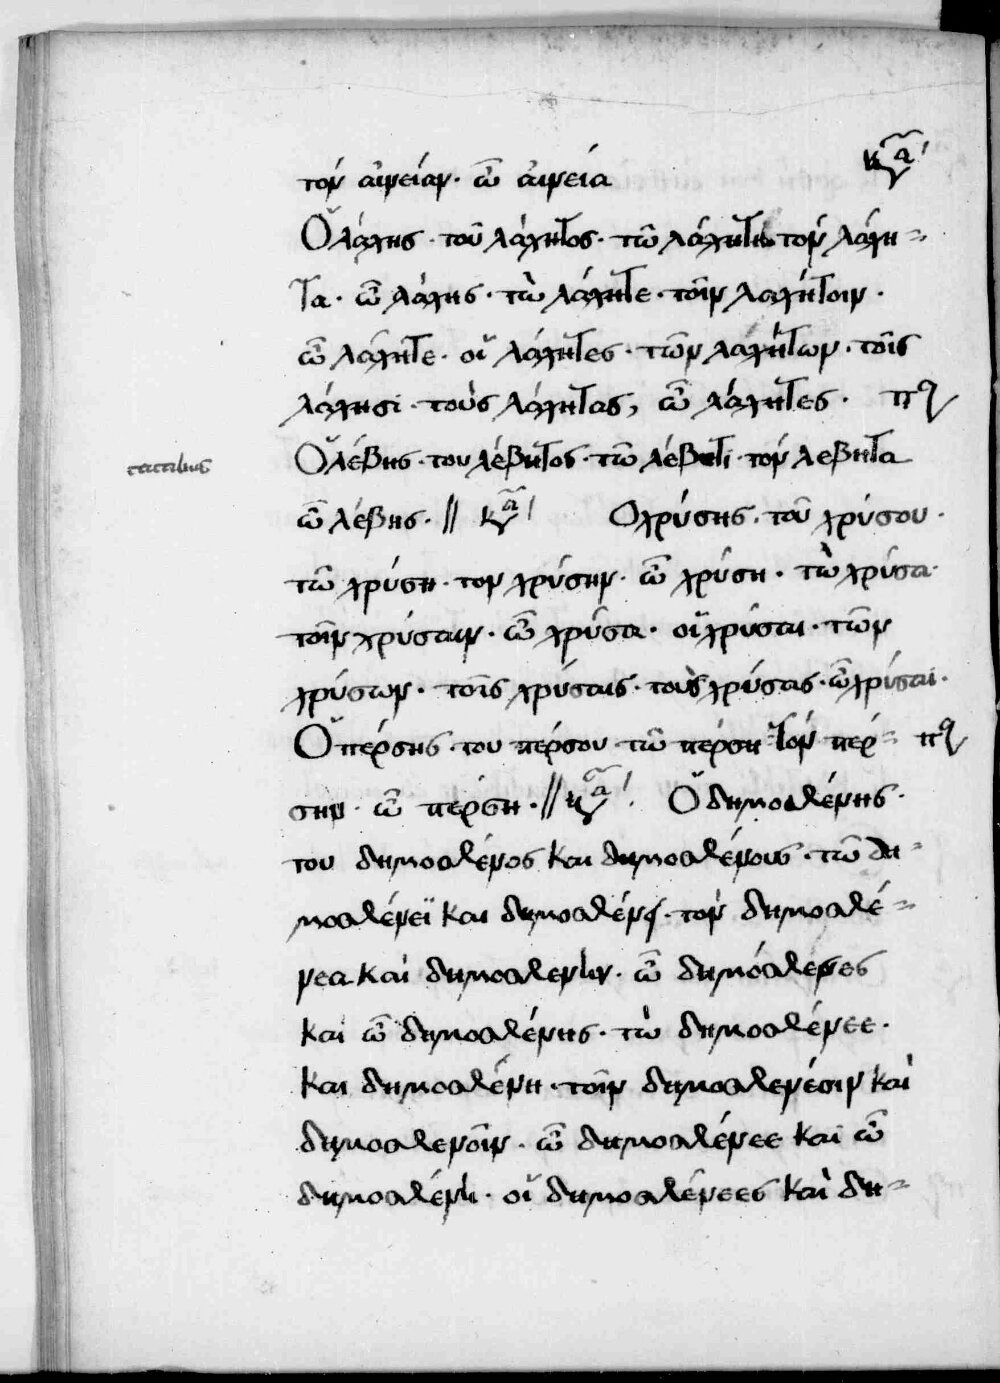 τὸν αἰνείαν· ὦ αἰνεία κύ̅ρ̅
Ὁ λάχης· τοῦ λάχητος· τῶ λάχητι· τὸν λάχη=
τα· ὦ λάχης· τὼ λάχητε· τοῖν λαχήτοιν·
ὦ λάχητε· οἱ λάχητες· τῶν λαχήτων· τοῖς
λάχησι· τοὺς λάχητας, ὦ λάχητες·
Ὁ λέβης· του λέβητος· τῶ λέβητι· τὸν λεβητα
ὦ λέβης· // Ὁ χρύσης· τοῦ χρύσου·
τῶ χρύση· τον χρύσην· ὦ χρύση· τὼ χρύσα·
τοῖν χρύσαιν· ὦ χρύσα· οἱ χρύσαι· τῶν
χρύσων· τοῖς χρύσαις· τοὺς χρύσας· ὦ χρύσαι·
Ὁ πέρσης· του πέρσου· τῶ πέρση· τὸν πέρ=
σην· ὦ πέρση· // Ὁ δημοσθένης·
του δημοσθένεος και δημοσθένους· τῶ δη=
μοσθένεϊ και δημοσθένει· τὸν δημοσθέ=
νεα καὶ δημοσθενην· ὦ δημόσθενες
και ὦ δημοσθένης· τὼ δημοσθένεε·
και δημοσθένη· τοῖν δημοσθενέοιν καὶ
δημοσθενοῖν· ὦ δημοσθένεε καὶ ὦ
δημοσθένη· οἱ δημοσθένεες καὶ δη=